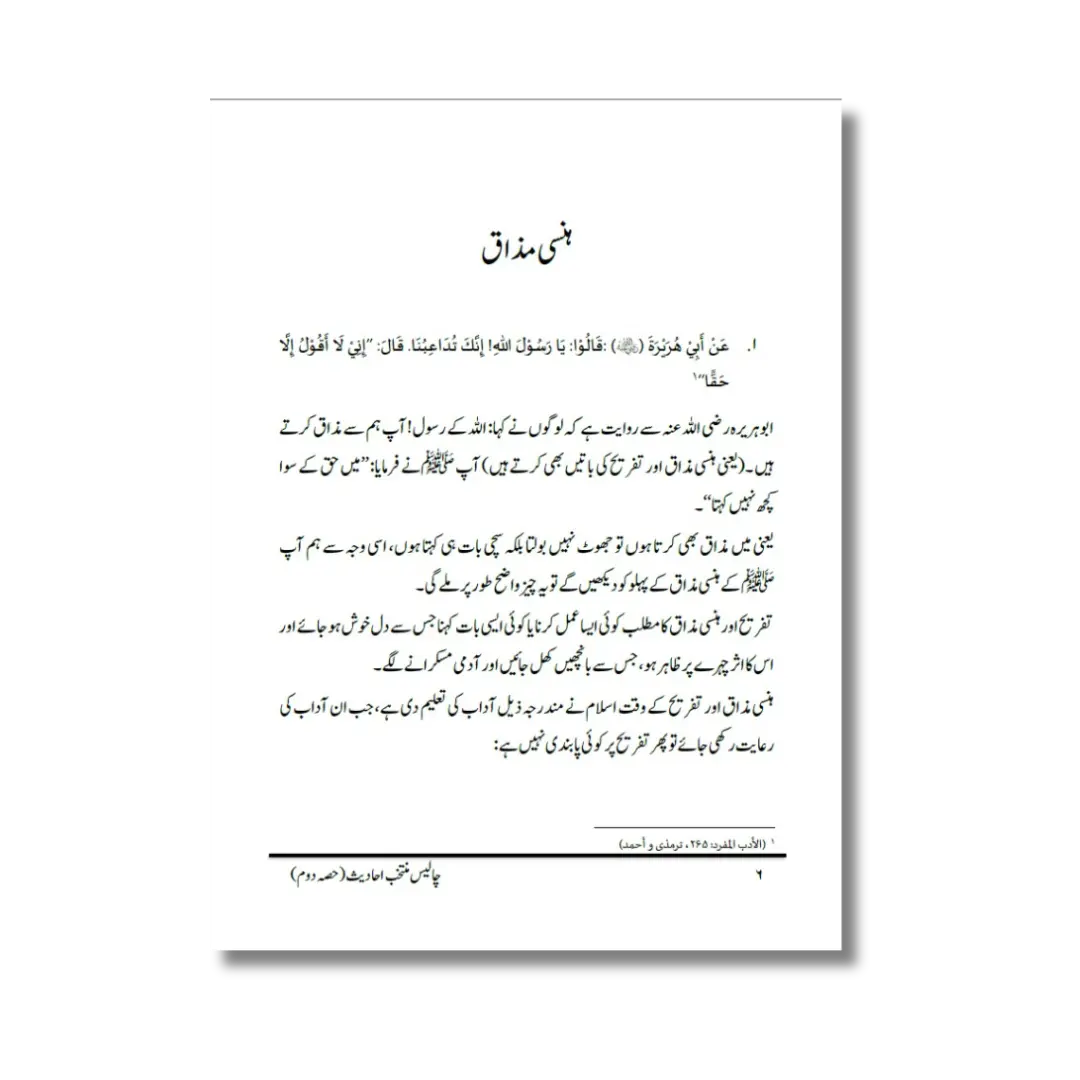 ہنسی مذاق
۱. عَنْ أَبِيْ هُرَيْرَةَ (رضي الله عنه) :قَالُوْا: يَا رَسُوْلَ اللهِ! إِنَّكَ تُدَاعِبُنَا. قَالَ: ”إِنِّيْ لَا أَقُوْلُ إِلَّا
حَقًّا“۱
ابوہریرہ رضی اللہ عنہ سے روایت ہے کہ لوگوں نے کہا: اللہ کے رسول! آپ ہم سے مذاق کرتے
ہیں۔ (یعنی ہنسی مذاق اور تفریح کی باتیں بھی کرتے ہیں) آپ ﷺ نے فرمایا: ”میں حق کے سوا
کچھ نہیں کہتا“۔
یعنی میں مذاق بھی کرتا ہوں تو جھوٹ نہیں بولتا بلکہ سچی بات ہی کہتا ہوں، اسی وجہ سے ہم آپ
ﷺ کے ہنسی مذاق کے پہلو کو دیکھیں گے تو یہ چیز واضح طور پر ملے گی۔
تفریح اور ہنسی مذاق کا مطلب کوئی ایسا عمل کرنا یا کوئی ایسی بات کہنا جس سے دل خوش ہو جائے اور
اس کا اثر چہرے پر ظاہر ہو، جس سے بانچھیں کھل جائیں اور آدمی مسکرانے لگے۔
ہنسی مذاق اور تفریح کے وقت اسلام نے مندرجہ ذیل آداب کی تعلیم دی ہے، جب ان آداب کی
رعایت رکھی جائے تو پھر تفریح پر کوئی پابندی نہیں ہے:
۱ (الأدب المفرد: ۲۶۵، ترمذی و أحمد)
۶ چالیس منتخب احادیث (حصہ دوم)